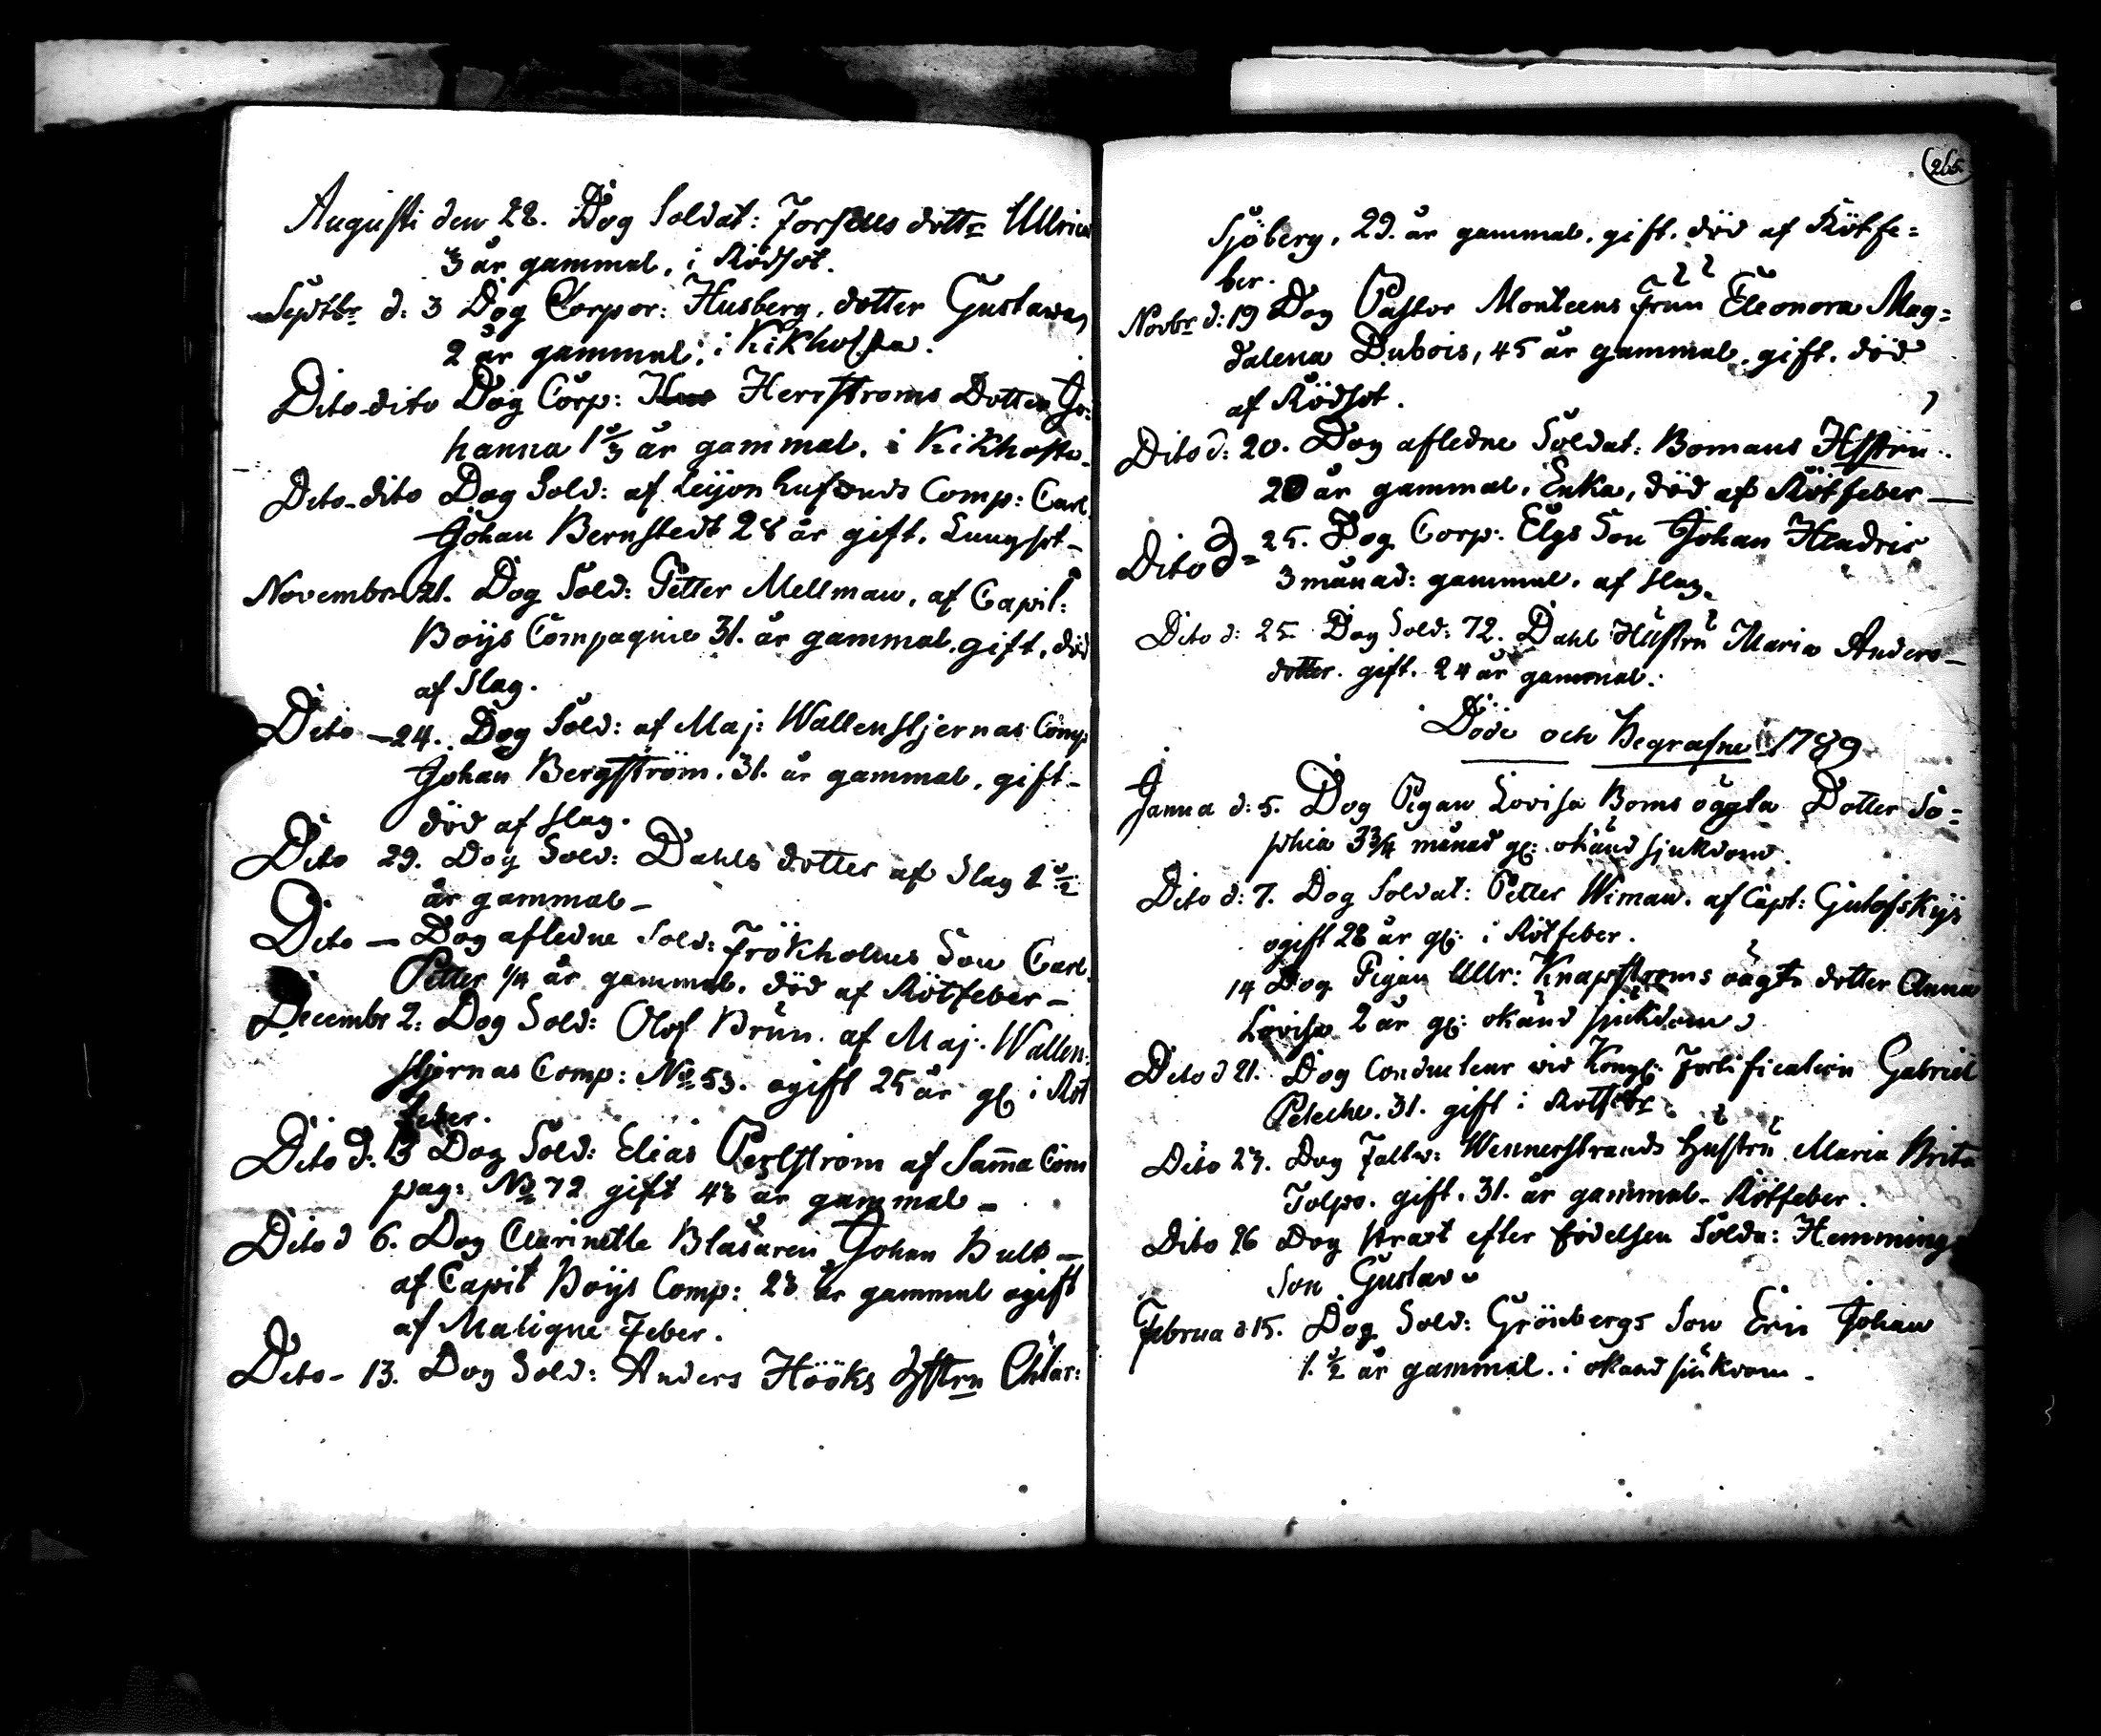 Augusti den 28. Dog Soldat: Forsells dottr Ullrica
3 år gammal, i Rödsot.
Septbr d: 3 Dog Corpor: Husberg, dotter Gustawa,
2 år gammal, i Kikhosta.
Dito dito Dog Corp: Herrstroms Dotter Jo:
hanna 1 2/3 år gammal, i Kikhosta.
Dito-dito Dog Sold: af Leyonhufwuds Comp: Carl
Johan Bernstedt 28 år gift. Lungsot-
Novembr 21. Dog Sold: Petter Mellman, af Capit:
Boijs Compagnie 31. år gammal, gift, död
af Slag.
Dito - 24. Dog Sold: af Maj: Wallenstjernas Comp
Johan Bergström. 31. år gammal, gift-
död af slag.
Dito 29. Dog Sold: Dahls dotter af Slag 1 1/2
år gammal-
Dito - Dog afledne Sold: Frökholms Son Carl
Petter 1/4 år gammal, död af Rötfeber-
Decembr 2: Dog Sold: Olof Brun. af Maj. Wallen:
stjernas Comp: No 53. ogift 25 år gl: i Röt
feber.
Dito d: 13 Dog Sold: Elias Perlström af Samma Com
pag: No 72 gift 43 år gammal -
Dito d 6. Dog Clarinette Blåsaren Johan Hult -
af Capit Boijs Comp: 23 år gammal ogift
af Maligne Feber.
Dito - 13. Dog Sold: Anders Hööks Hstru Chtar:
265
Sjöberg, 29. år gammal. gift. död af Rötfe=
ber.
Novbr d: 19 Dog Pastor Monteens Fru Eleonora Mag=
dalena Dubois, 45 år gammal, gift. död
af Rödsot.
Dito d: 20. Dog afledne Soldat: Bomans Hstru
20 år gammal, Enka, död af Rötfeber -
Dito d= 25. Dog Corp: Elgs Son Johan Hendric
3 månad: gammal. af slag.
Dito d: 25 Dog Sold: 72. Dahl Hustru Maria Anders-
dotter. gift. 24 år gammal.
Döde och Begrafne 1789
Janua d: 5. Dog Pigan Lovisa Boms oägta Dotter So=
phia 3 3/4 månad gl: okänd sjukdom.
Dito d: 7. Dog Soldat: Petter Wiman. af Capt:
ogift 28 år gl: i Rötfeber.
14 Dog Pigan Ullr: Knapströms oägta dotter Anna
Lovisa 2 år gl: okänd sjukdom
Dito d 21. Dog Conducteur wid Kongl: Fortification Gabriel
31. gift i Rötfebr
Dito 23. Dog Wennerstrands Hustru Maria Brita
Tolpo. gift. 31. år gammal- Rötfeber.
Dito 26 Dog straxt efter födelsen Solda: Hemmings
Son Gustav
Februa d 15. Dog Sold: Grönbergs Son Eric Johan
1. 1/2 år gammal. i okänd sjukdom.